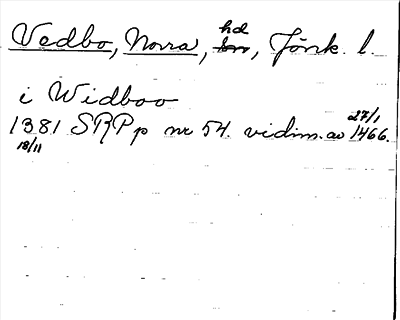 Vedbo, Norra, hd, Jönk. l.
i Widboo
1381 SRPp nr 54. vidim. av 27/1 1466.
18/11